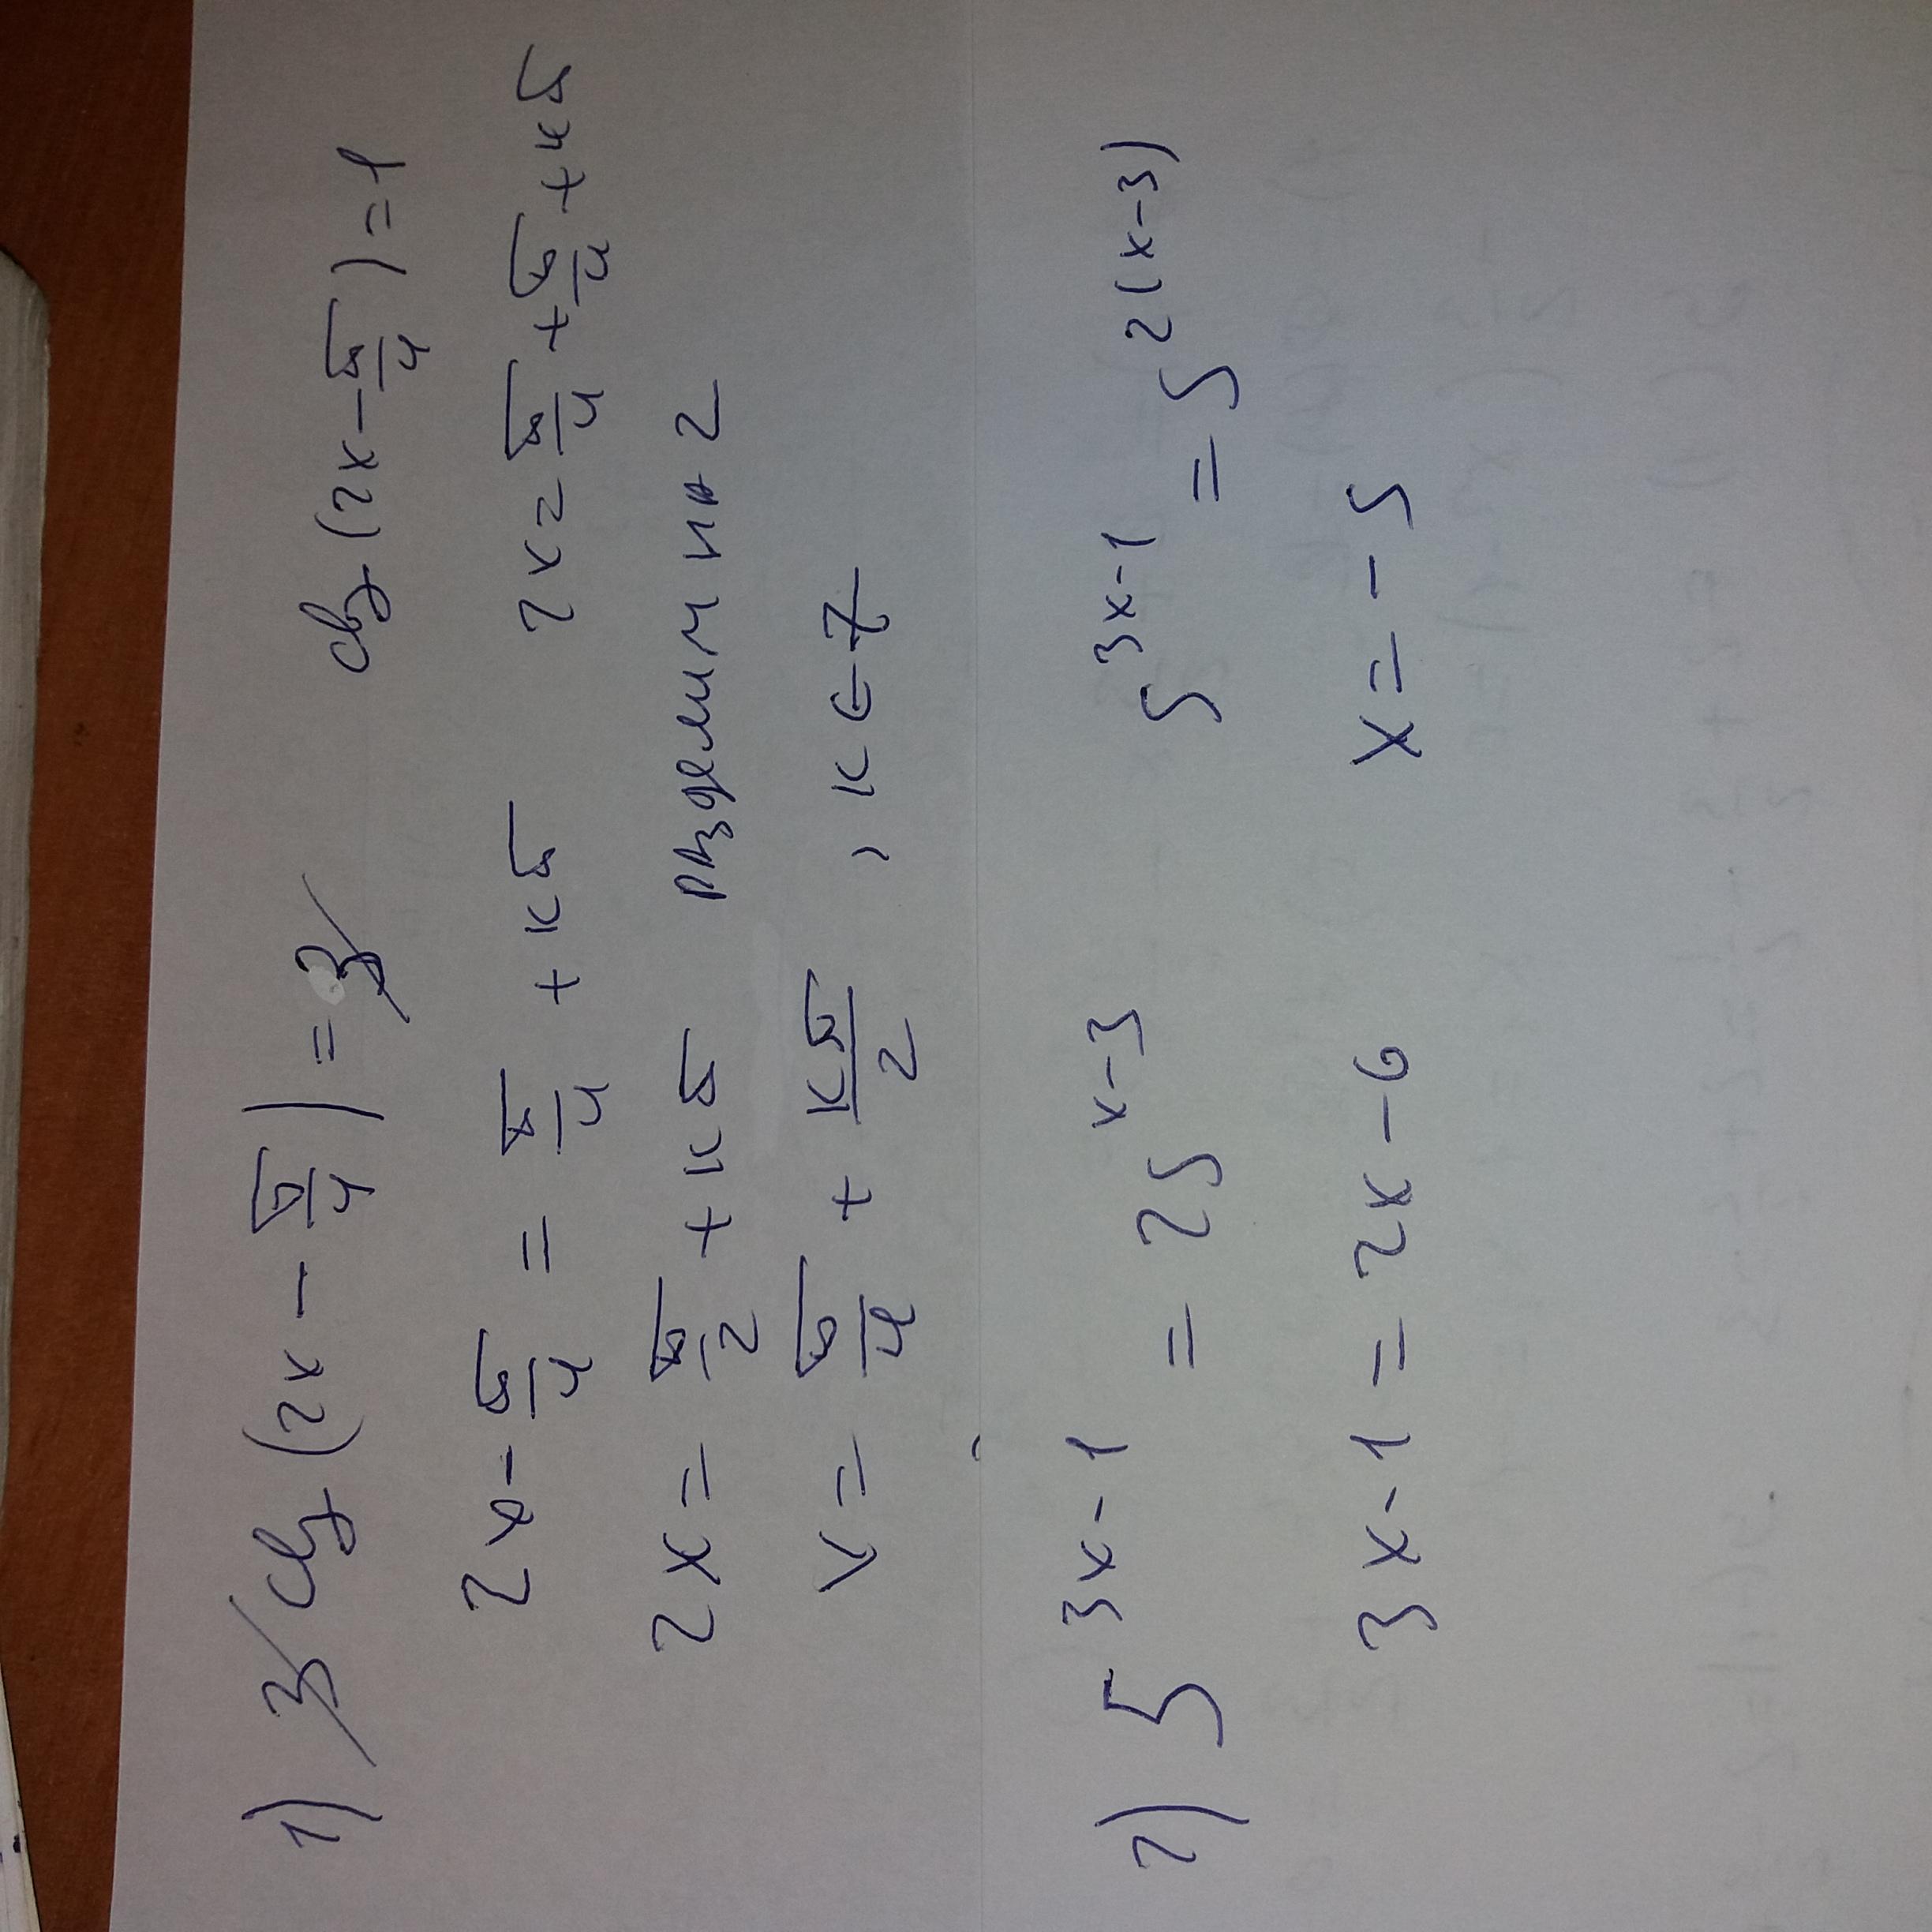 1) 3 ctg (2x - π/4) = 3 ctg (2x - π/4) = 1
2x - π/4 = π/4 + кπ 2x = π/4 + π/4 + кπ
2x = π/2 + кπ разделим на 2
x = π/4 + кπ/2 , к ∈ Z
2) 5^(3x-1) = 25^(x-3) 5^(3x-1) = 5^(2(x-3))
3x - 1 = 2x - 6 x = -5